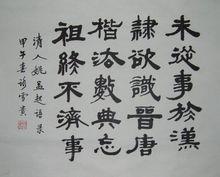 未從事於漢
隸欲識晉唐
楷法數典忘
祖終不濟事
清人姚孟起語录
甲午春詠雪貴